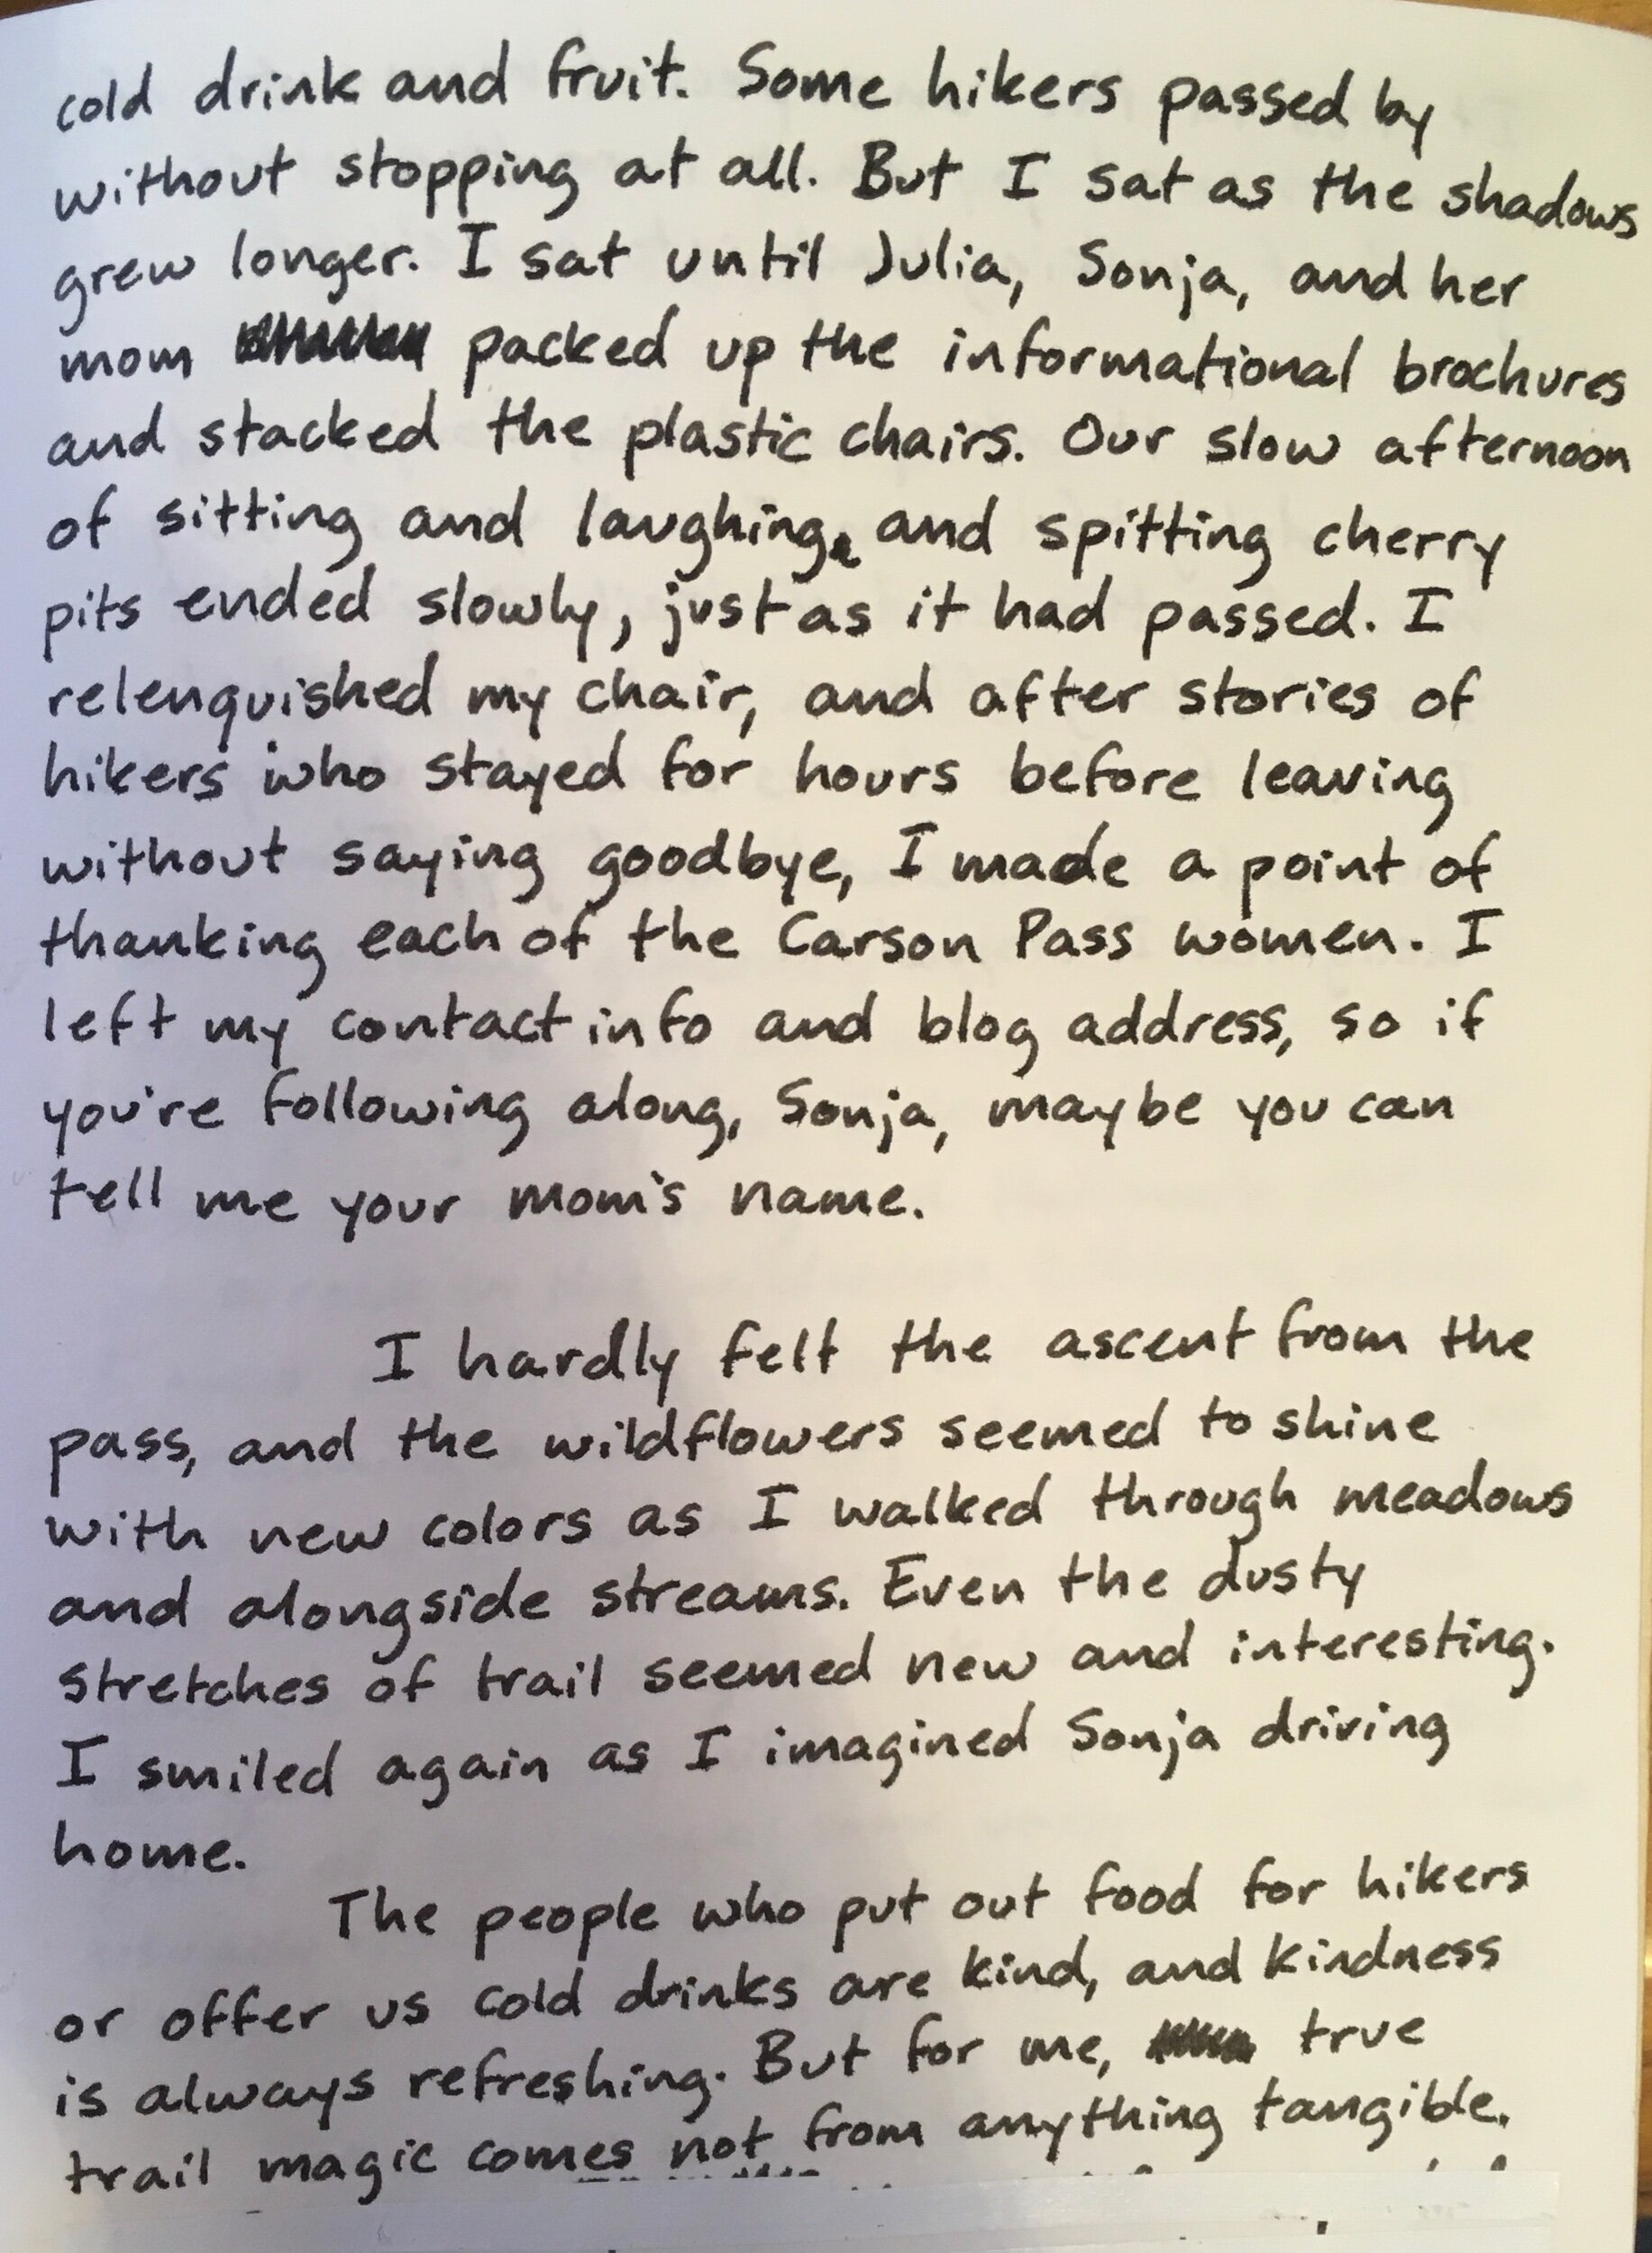 cold drink and fruit. Some hikers passed by
without stopping at all. But I sat as the shadows
grew longer. I sat until Julia, Sonja, and her
mom packed up the informational brochures
and stacked the plastic chairs. Our slow afternoon
of sitting and laughing, and spitting cherry
pits ended slowly, just as it had passed. I
relenquished my chair, and after stories of
hikers who stayed for hours before leaving
without saying goodbye, I made a point of
thanking each of the Carson Pass women. I
left my contact info and blog address, so if
you're following along, Sonja, maybe you can
tell me your mom's name.
I hardly felt the ascent from the
pass, and the wildflowers seemed to shine
with new colors as I walked through meadows
and alongside streams. Even the dusty
stretches of trail seemed new and interesting.
I smiled again as I imagined Sonja driving
home.
The people who put out food for hikers
or offer us cold drinks are kind, and kindness
is always refreshing. But for me, true
trail magic comes not from anything tangible.